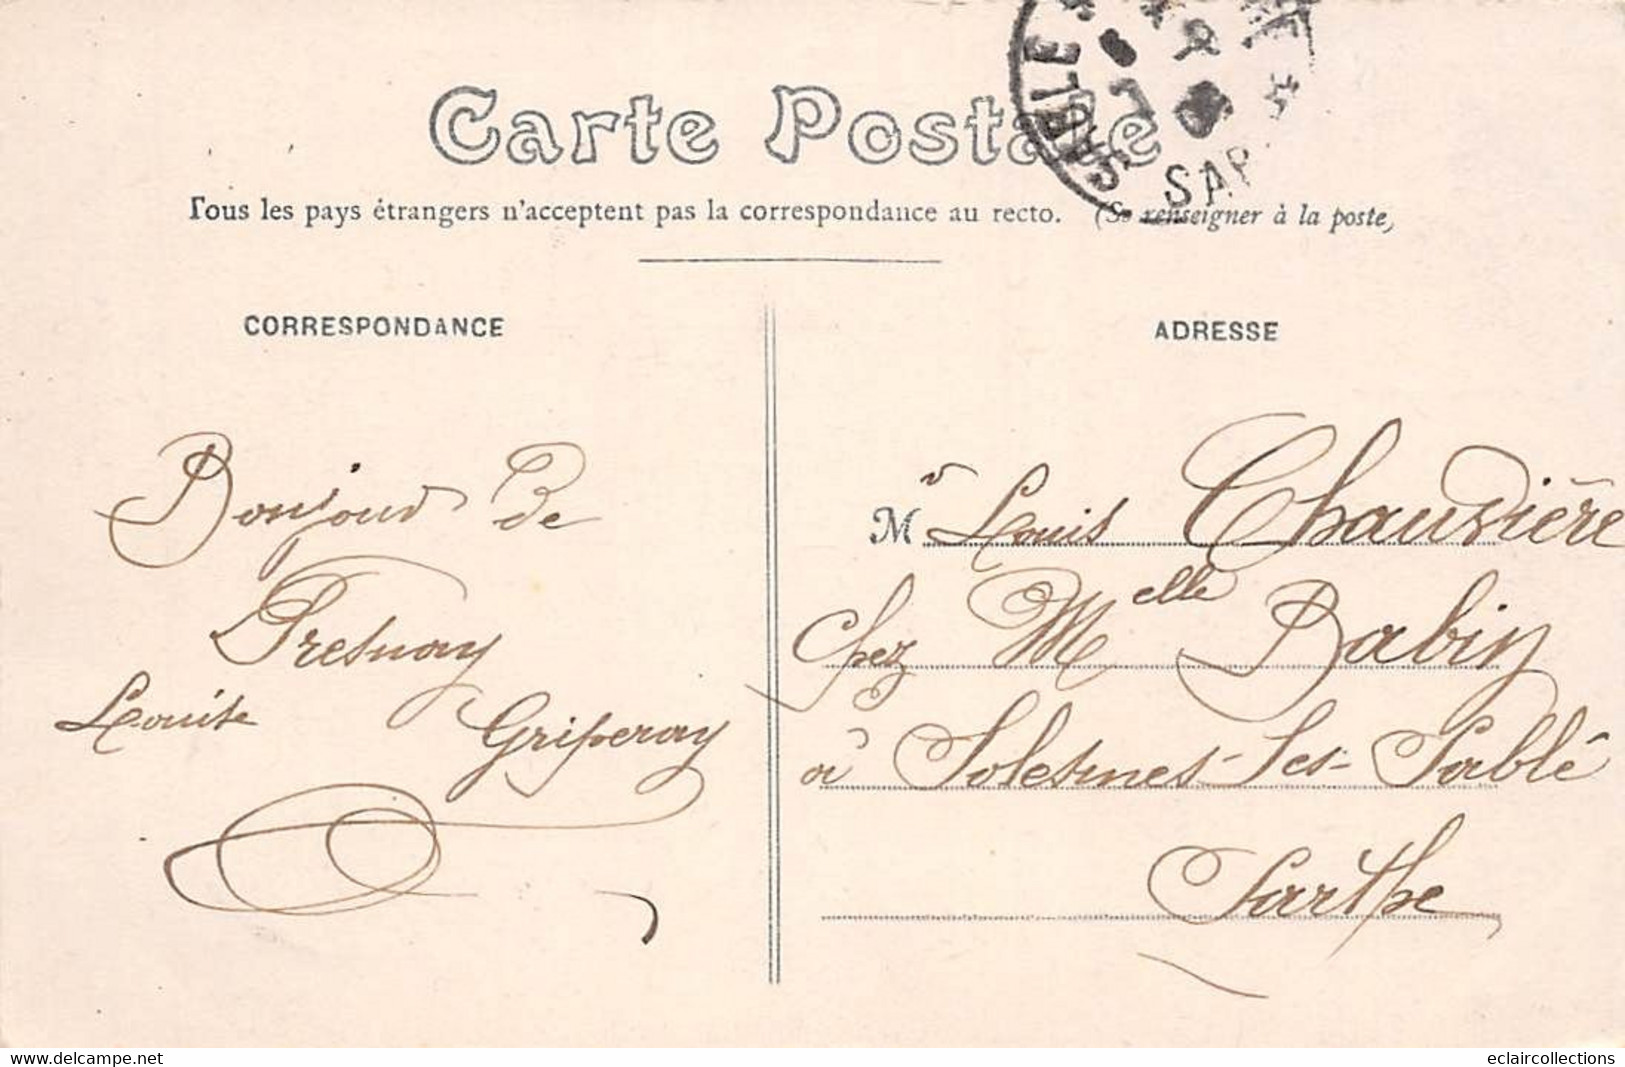 Carte Postale
Tous les pays étrangers n'acceptent pas la correspondance au recto. (Se renseigner à la poste)
SABLÉ
SAR
CORRESPONDANCE
ADRESSE
Bonjour De
Fresnay
Louise
Mr Louis Chauvière
Chez Melle Babin
à Solesmes-les-Sablé
Sarthe
www.delcampe.net
eclaircollections